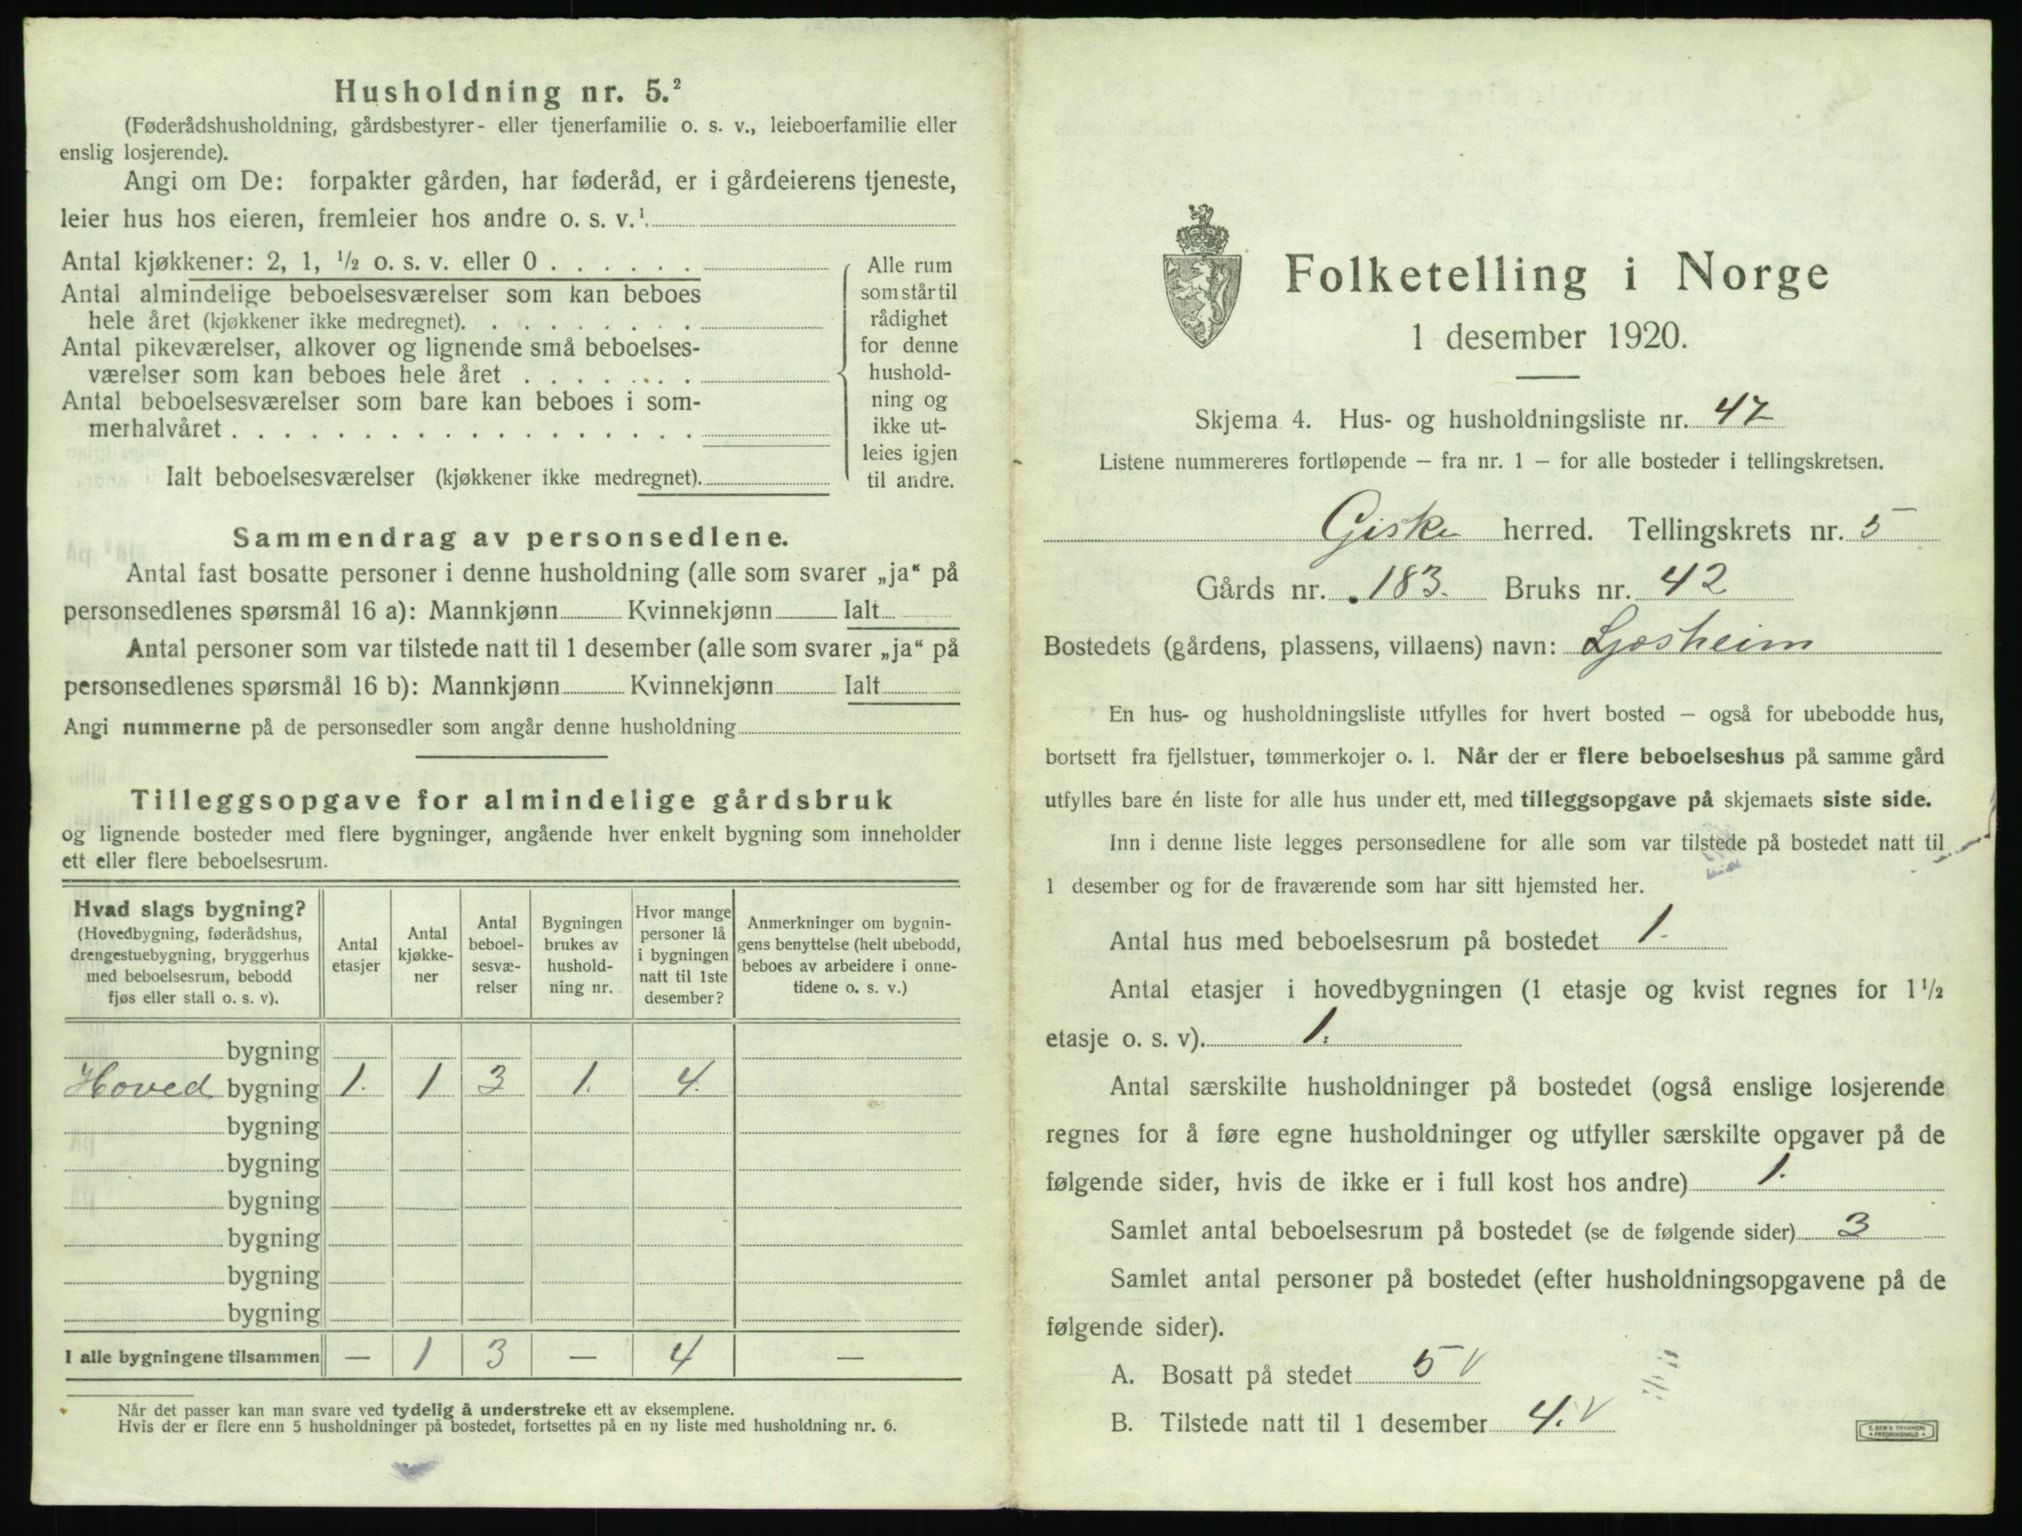 Husholdning nr. 5.²
(Føderådshusholdning, gårdsbestyrer- eller tjenerfamilie o. s. v., leieboerfamilie eller
enslig losjerende).
Angi om De: forpakter gården, har føderåd, er i gårdeierens tjeneste,
leier hus hos eieren, fremleier hos andre o. s. v.¹
Antal kjøkkener: 2, 1, ½ o. s. v. eller 0 . . . . . .
Antal almindelige beboelsesværelser som kan beboes
hele året (kjøkkener ikke medregnet). . . . . . . . .
Antal pikeværelser, alkover og lignende små beboelses-
værelser som kan beboes hele året . . . . . . .
Antal beboelsesværelser som bare kan beboes i som-
merhalvåret . . . . . . . . . . . . . . . . . .
Ialt beboelsesværelser (kjøkkener ikke medregnet).
Alle rum
som står til
rådighet
for denne
hushold-
ning og
ikke ut-
leies igjen
til andre.
Sammendrag av personsedlene.
Antal fast bosatte personer i denne husholdning (alle som svarer „ja“ på
personsedlenes spørsmål 16 a): Mannkjønn Kvinnekjønn Ialt
Antal personer som var tilstede natt til 1 desember (alle som svarer „ja“ på
personsedlenes spørsmål 16 b): Mannkjønn Kvinnekjønn Ialt
Angi nummerne på de personsedler som angår denne husholdning
Tilleggsopgave for almindelige gårdsbruk
og lignende bosteder med flere bygninger, angående hver enkelt bygning som inneholder
ett eller flere beboelsesrum.
Hvad slags bygning?
(Hovedbygning, føderådshus,
drengestuebygning, bryggerhus
med beboelsesrum, bebodd
fjøs eller stall o. s. v).
Antal
etasjer
Antal
kjøkke-
ner
Antal
beboel-
sesvæ-
relser
Bygningen
brukes av
hushold-
ning nr.
Hvor mange
personer lå
i bygningen
natt til 1ste
desember?
Anmerkninger om bygnin-
gens benyttelse (helt ubebodd,
beboes av arbeidere i onne-
tidene o. s. v.)
bygning
Hoved bygning 1. 1 3 1. 4.
bygning
bygning
bygning
bygning
bygning
bygning
I alle bygningene tilsammen — 1 3 — 4 —
Når det passer kan man svare ved tydelig å understreke ett av eksemplene.
Hvis der er flere enn 5 husholdninger på bostedet, fortsettes på en ny liste med husholdning nr. 6.
Folketelling i Norge
1 desember 1920.
Skjema 4. Hus- og husholdningsliste nr. 47
Listene nummereres fortløpende – fra nr. 1 – for alle bosteder i tellingskretsen.
Giske herred. Tellingskrets nr. 5
Gårds nr. 183. Bruks nr. 42
Bostedets (gårdens, plassens, villaens) navn: Ljosheim
En hus- og husholdningsliste utfylles for hvert bosted – også for ubebodde hus,
bortsett fra fjellstuer, tømmerkojer o. l. Når der er flere beboelseshus på samme gård
utfylles bare én liste for alle hus under ett, med tilleggsopgave på skjemaets siste side.
Inn i denne liste legges personsedlene for alle som var tilstede på bostedet natt til
1 desember og for de fraværende som har sitt hjemsted her.
Antal hus med beboelsesrum på bostedet 1.
Antal etasjer i hovedbygningen (1 etasje og kvist regnes for 1½
etasje o. s. v). 1.
Antal særskilte husholdninger på bostedet (også enslige losjerende
regnes for å føre egne husholdninger og utfyller særskilte opgaver på de
følgende sider, hvis de ikke er i full kost hos andre) 1.
Samlet antal beboelsesrum på bostedet (se de følgende sider) 3
Samlet antal personer på bostedet (efter husholdningsopgavene på de
følgende sider).
A. Bosatt på stedet 5 V
B. Tilstede natt til 1 desember 4. V